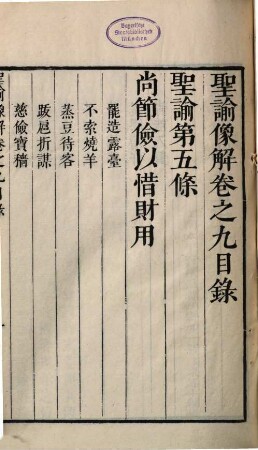 Bayerische
Staatsbibliothek
München
聖諭像解卷之九目錄
聖諭第五條
尚節儉以惜財用
罷造露臺
不索燒羊
蒸豆待客
跋扈折謀
慈儉寶穡
聖諭像解卷之九目錄